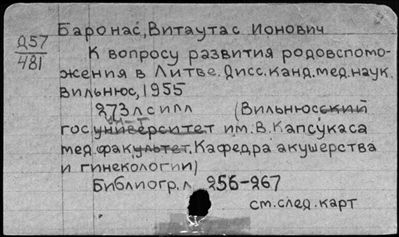 Баронас, Витаутас Ионович
Д57
481
К вопросу развития родовспомо-
жения в Литве. Дисс. канд. мед. наук.
Вильнюс, 1955
273 л с илл (Вильнюсский
гос университет им. В. Капсукаса
мед. факультет. Кафедра акушерства
и гинекологии)
Библиогр. л. 256-267
см. след. карт